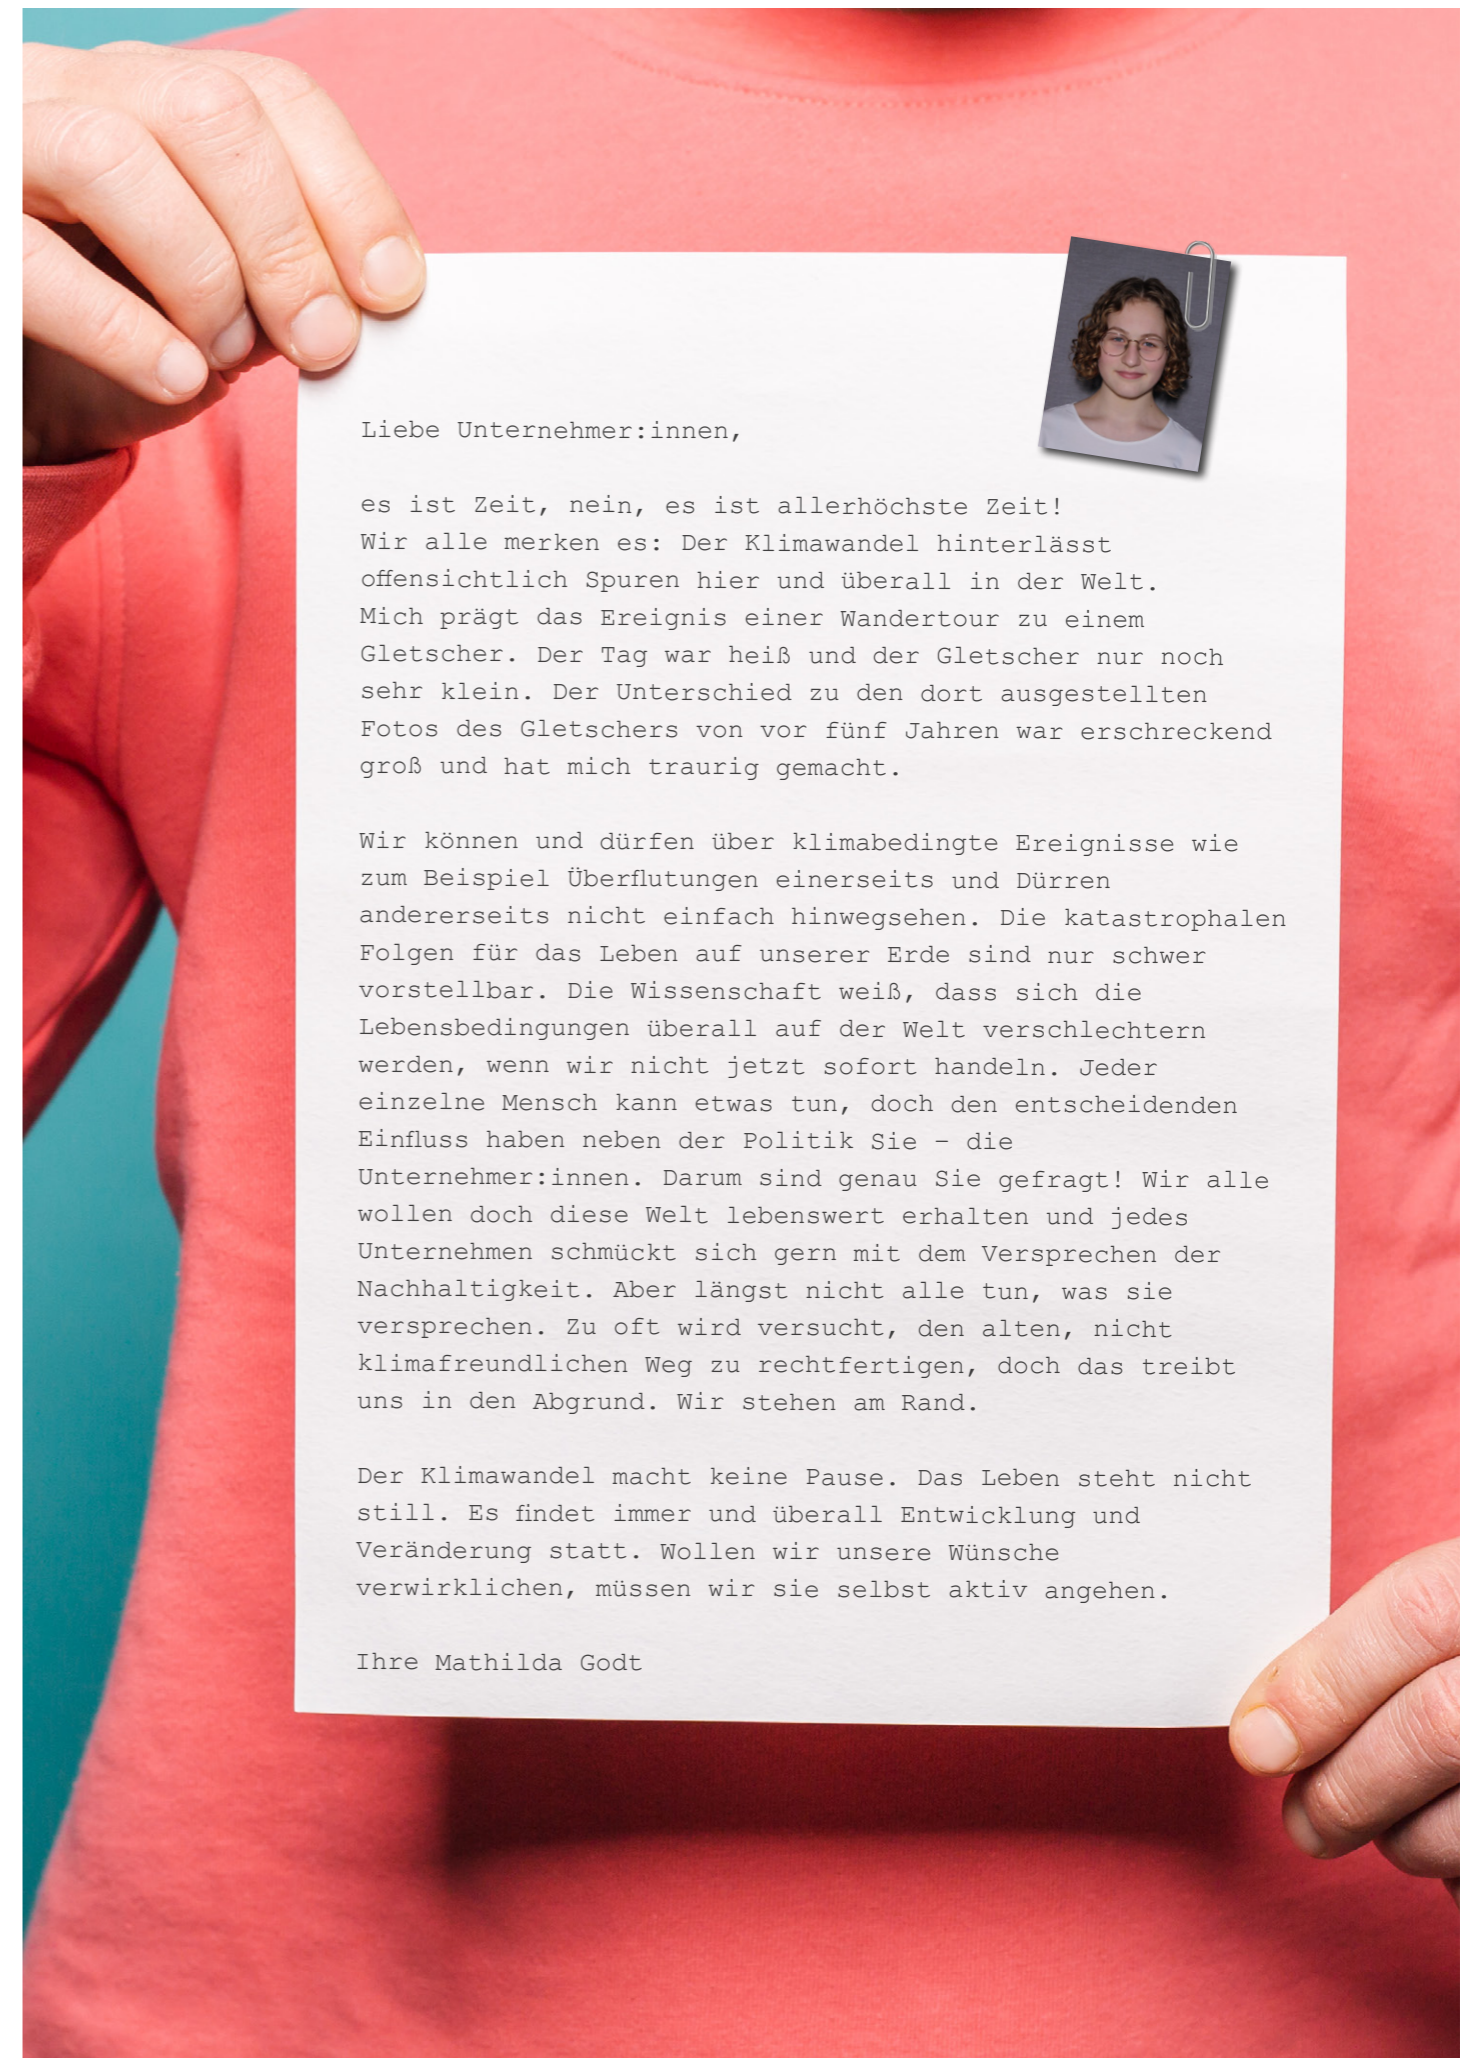 Liebe Unternehmer:innen,
es ist Zeit, nein, es ist allerhöchste Zeit!
Wir alle merken es: Der Klimawandel hinterlässt
offensichtlich Spuren hier und überall in der Welt.
Mich prägt das Ereignis einer Wandertour zu einem
Gletscher. Der Tag war heiß und der Gletscher nur noch
sehr klein. Der Unterschied zu den dort ausgestellten
Fotos des Gletschers von vor fünf Jahren war erschreckend
groß und hat mich traurig gemacht.
Wir können und dürfen über klimabedingte Ereignisse wie
zum Beispiel Überflutungen einerseits und Dürren
andererseits nicht einfach hinwegsehen. Die katastrophalen
Folgen für das Leben auf unserer Erde sind nur schwer
vorstellbar. Die Wissenschaft weiß, dass sich die
Lebensbedingungen überall auf der Welt verschlechtern
werden, wenn wir nicht jetzt sofort handeln. Jeder
einzelne Mensch kann etwas tun, doch den entscheidenden
Einfluss haben neben der Politik Sie – die
Unternehmer:innen. Darum sind genau Sie gefragt! Wir alle
wollen doch diese Welt lebenswert erhalten und jedes
Unternehmen schmückt sich gern mit dem Versprechen der
Nachhaltigkeit. Aber längst nicht alle tun, was sie
versprechen. Zu oft wird versucht, den alten, nicht
klimafreundlichen Weg zu rechtfertigen, doch das treibt
uns in den Abgrund. Wir stehen am Rand.
Der Klimawandel macht keine Pause. Das Leben steht nicht
still. Es findet immer und überall Entwicklung und
Veränderung statt. Wollen wir unsere Wünsche
verwirklichen, müssen wir sie selbst aktiv angehen.
Ihre Mathilda Godt